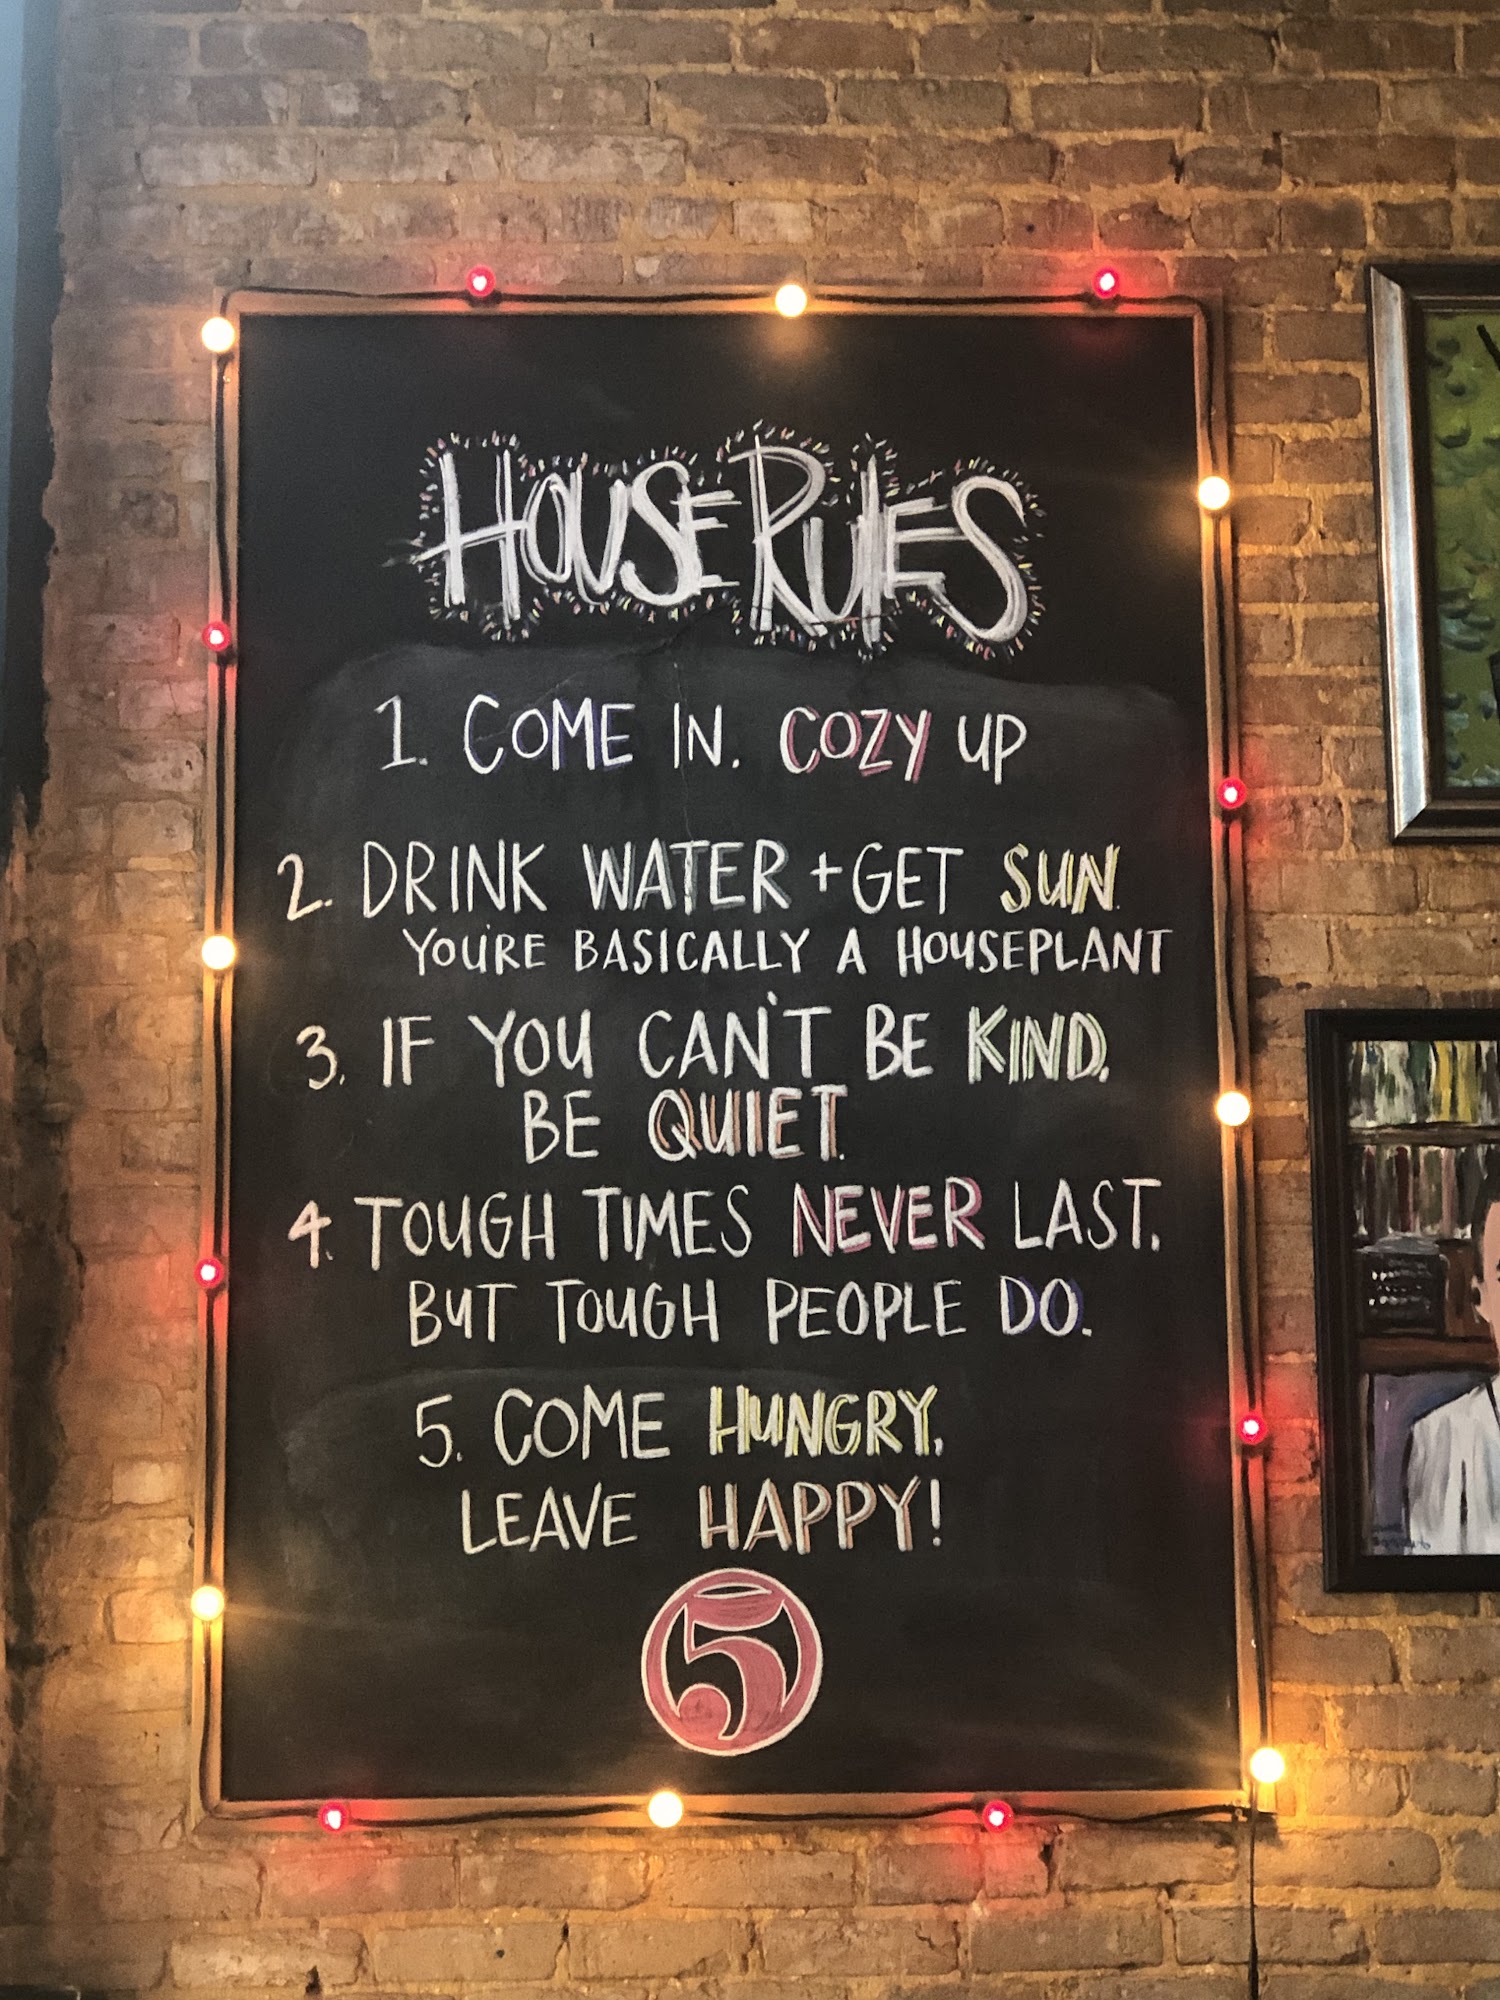 HOUSE RULES
1. COME IN. COZY UP
2. DRINK WATER + GET SUN.
YOU'RE BASICALLY A HOUSEPLANT
3. IF YOU CAN'T BE KIND,
BE QUIET.
4. TOUGH TIMES NEVER LAST.
BUT TOUGH PEOPLE DO.
5. COME HUNGRY.
LEAVE HAPPY!
5